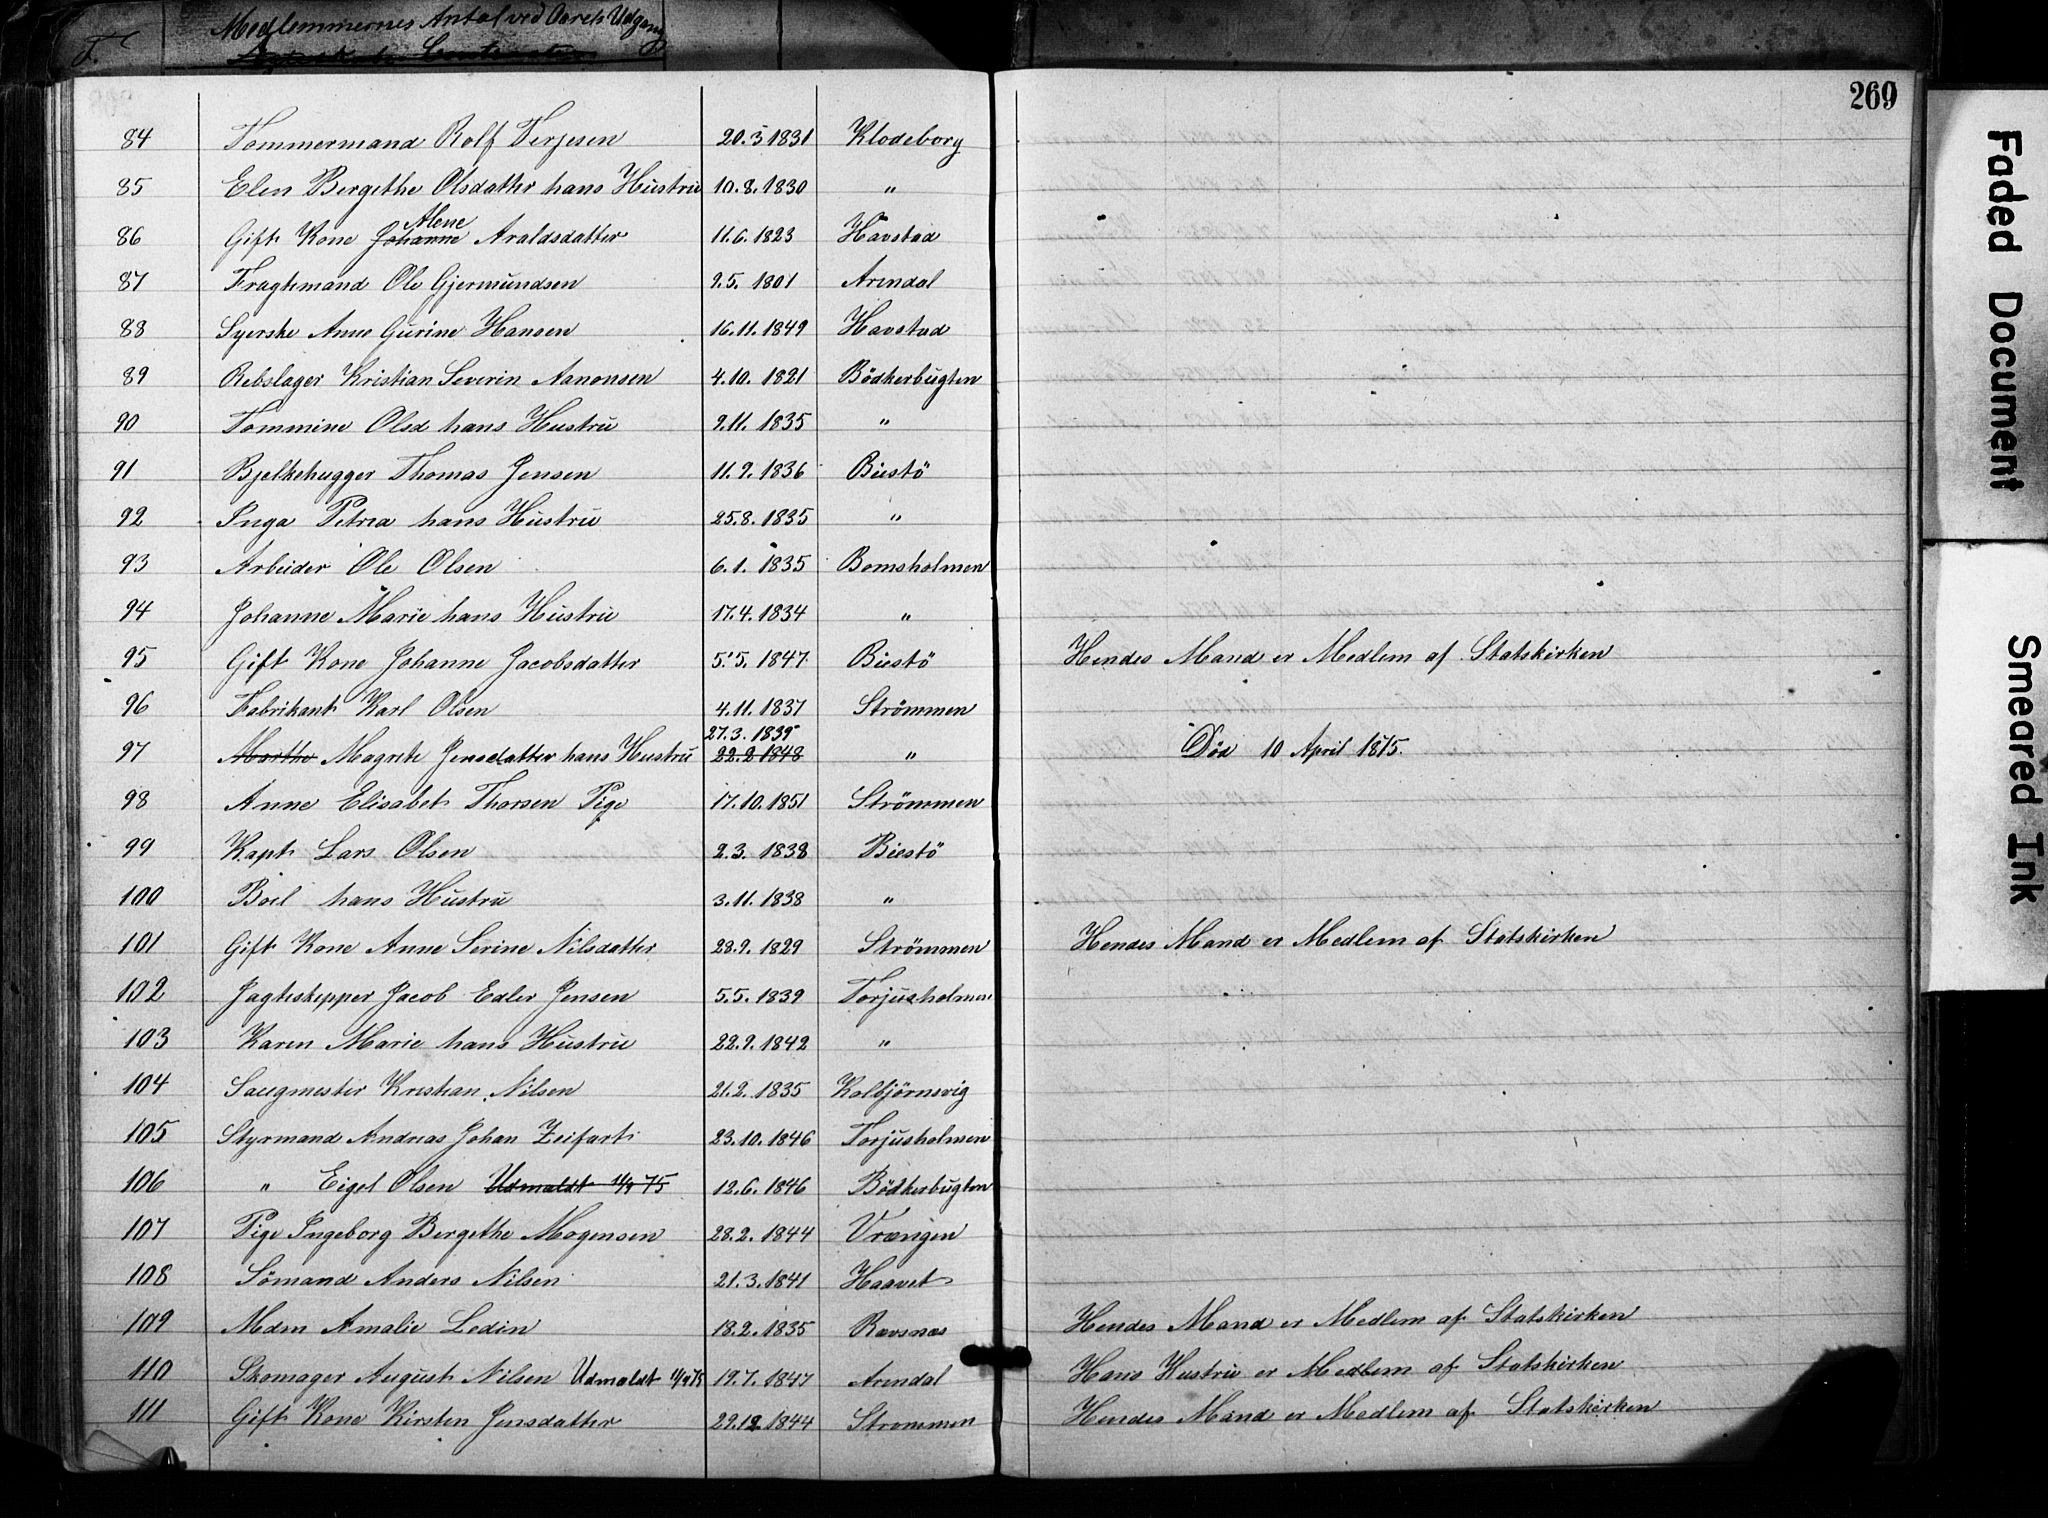 F. Medlemmernes Antal ved Aarets Udgang
269
84 Tømmermand Rolf Terjesen 20.3 1831 Klodeborg
85 Elen Bergethe Olsdatter hans Hustru 10.8.1830 "
Alene
86 Gift Kone Johanne Araldsdatter 11.6.1823 Havstad
87 Fragtemand Ole Gjermundsen 9.5. 1801 Arendal
88 Syerske Anne Gurine Hansen 16.11.1849 Havstad
89 Rebslager Kristian Severin Aanonsen 4.10.1821 Bödkerbugten
90 Tommine Olsd hans Hustru 9.11.1835 "
91 Bjelkehugger Thomas Jensen 11.9.1836 Biestö
92 Inga Petrea hans Hustru 25.8.1835 "
93 Arbeider Ole Olsen 6.1.1835 Bomsholmen
94 Johanne Marie hans Hustru 17.4.1834 "
95 Gift Kone Johanne Jacobsdatter 5.5.1847 Biestö Hendes Mand er Medlem af Statskirken
96 Fabrikant Karl Olsen 4.11.1837 Strömmen
27.3.1839
97 Marthe Magrete Jensdatter hans Hustru 22.2 1848 " Död 10 April 1875.
98 Anne Elisabet Thorsen Pige 17.10.1851 Strömmen
99 Kapt. Lars Olsen 2.3.1838 Biestö
100 Boel hans Hustru 3.11.1838 "
101 Gift Kone Anne Serine Nilsdatter 28.9.1829 Strömmen Hendes Mand er Medlem af Statskirken
102 Jagteskipper Jacob Edler Jensen 5.5.1839 Torjusholmen
103 Karen Marie hans Hustru 22.9.1842 "
104 Saugmester Kristian Nilsen 21.2.1835 Kolbjörnsvig
105 Styrmand Andreas Johan Zeifart 23.10.1846 Torjusholmen
106 " Eigel Olsen Udmeldt 11/9 75 12.6.1846 Bödkerbugten
107 Pige Ingeborg Bergethe Mogensen 28.2.1844 Vrængen
108 Sömand Anders Nilsen 21.3.1841 Haavet
109 Mdm Amalie Ledin 18.2.1835 Revsnes Hendes Mand er Medlem af Statskirken
110 Skomager August Nilsen Udmeldt 11/9 75 19.7.1847 Arendal Hans Hustru er Medlem af Statskirken
111 Gift Kone Kirsten Jensdatter 29.12.1844 Strømmen Hendes Mand er Medlem af Statskirken
Faded Document
Smeared Ink